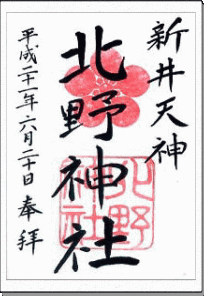 新井天神
北野神社
平成二十一年六月二十日 奉拝
北野
神社